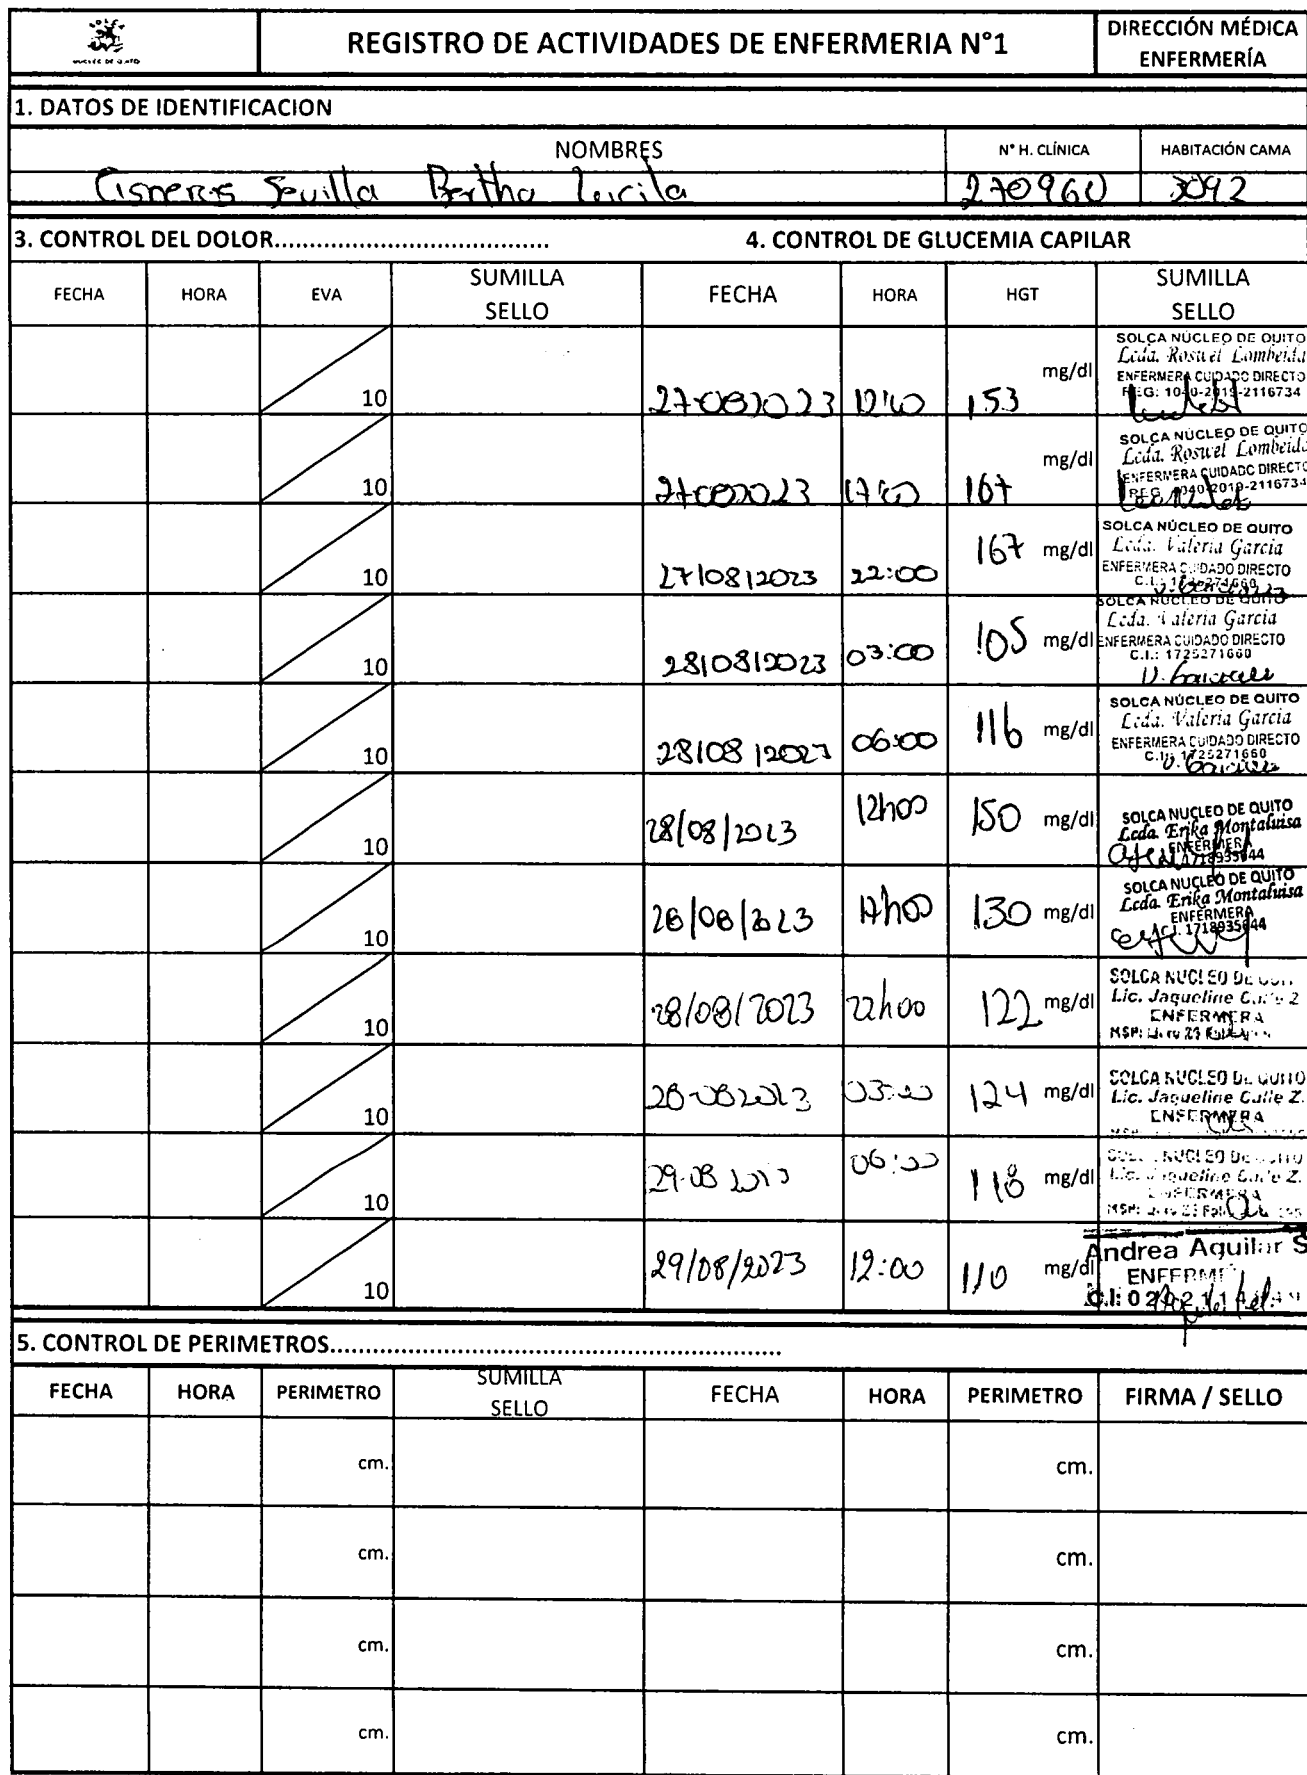 NUCLEO DE QUITO
REGISTRO DE ACTIVIDADES DE ENFERMERIA N°1
DIRECCIÓN MÉDICA
ENFERMERÍA
1. DATOS DE IDENTIFICACION
NOMBRES
N° H. CLÍNICA
HABITACIÓN CAMA
Cisneros Sevilla Bertha Lucila
270960
3092
3. CONTROL DEL DOLOR.......................................
4. CONTROL DE GLUCEMIA CAPILAR
FECHA HORA EVA SUMILLA SELLO FECHA HORA HGT SUMILLA SELLO
10 27-08-2023 153 mg/dl
SOLCA NÚCLEO DE QUITO
Lcda. Roswel Lombeida
ENFERMERA CUIDADO DIRECTO
REG: 1040-2019-2116734
10 27-08-2023 167 mg/dl
SOLCA NÚCLEO DE QUITO
Lcda. Roswel Lombeida
ENFERMERA CUIDADO DIRECTO
REG: 1040-2019-2116734
10 27/08/2023 22:00 167 mg/dl
SOLCA NÚCLEO DE QUITO
Lcda. Valeria García
ENFERMERA CUIDADO DIRECTO
10 28/08/2023 03:00 105 mg/dl
SOLCA NÚCLEO DE QUITO
Lcda. Valeria García
ENFERMERA CUIDADO DIRECTO
C.I.: 1725271660
10 28/08/2023 06:00 116 mg/dl
SOLCA NÚCLEO DE QUITO
Lcda. Valeria García
ENFERMERA CUIDADO DIRECTO
C.I.: 1725271660
10 28/08/2023 12h00 150 mg/dl
SOLCA NUCLEO DE QUITO
Lcda. Erika Montaluisa
ENFERMERA
10 28/08/2023 17h00 130 mg/dl
SOLCA NUCLEO DE QUITO
Lcda. Erika Montaluisa
ENFERMERA
C.I. 1718935644
10 28/08/2023 22h00 122 mg/dl
SOLCA NUCLEO DE
Lic. Jaqueline Calle Z.
ENFERMERA
10 28-08-2023 03:00 124 mg/dl
SOLCA NUCLEO DE QUITO
Lic. Jaqueline Calle Z.
ENFERMERA
10 29-08 2023 06:00 118 mg/dl
NUCLEO DE QUITO
Lic. Jaqueline Calle Z.
ENFERMERA
10 29/08/2023 12:00 110 mg/dl
Andrea Aguilar S
ENFERME
5. CONTROL DE PERIMETROS................................................................
FECHA HORA PERIMETRO SUMILLA SELLO FECHA HORA PERIMETRO FIRMA / SELLO
cm. cm.
cm. cm.
cm. cm.
cm. cm.